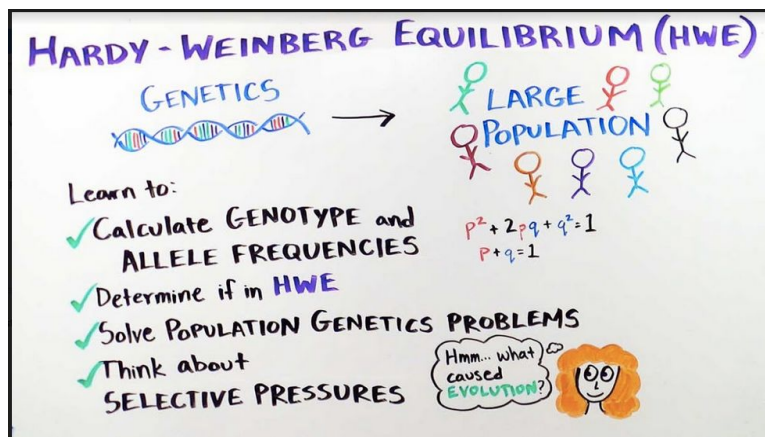 HARDY-WEINBERG EQUILIBRIUM (HWE)
GENETICS
LARGE
POPULATION
Learn to:
✓Calculate GENOTYPE and
ALLELE FREQUENCIES
p²+2pq+q²=1
p+q=1
✓Determine if in HWE
✓Solve POPULATION GENETICS PROBLEMS
✓Think about
SELECTIVE PRESSURES
Hmm... what
caused
EVOLUTION?